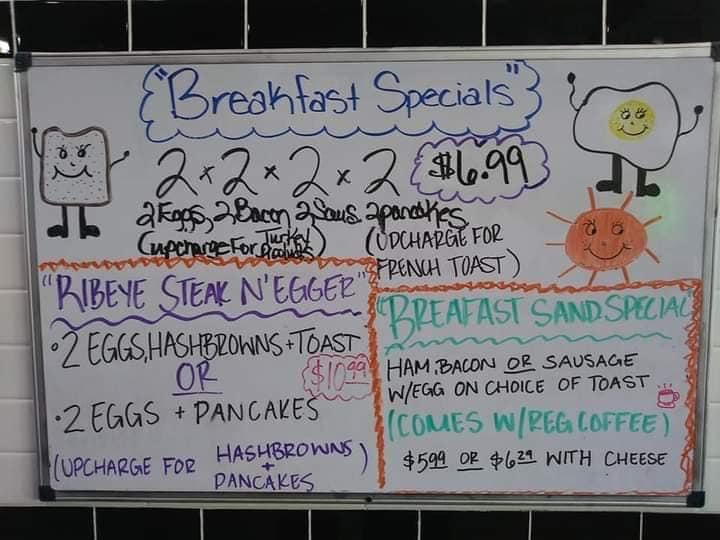 "Breakfast Specials"
2 x 2 x 2 x 2 $6.99
2 Eggs, 2 Bacon 2 Saus. 2 pancakes
(upcharge For Turkey Products) (UPCHARGE FOR
FRENCH TOAST)
"RIBEYE STEAK N'EGGER"
• 2 EGGS, HASHBROWNS + TOAST
OR $10.99
• 2 EGGS + PANCAKES
(UPCHARGE FOR HASHBROWNS
+
PANCAKES)
"BREAFAST SAND. SPECIAL"
HAM, BACON OR SAUSAGE
W/EGG ON CHOICE OF TOAST
(COMES W/REG COFFEE)
$5.99 OR $6.29 WITH CHEESE